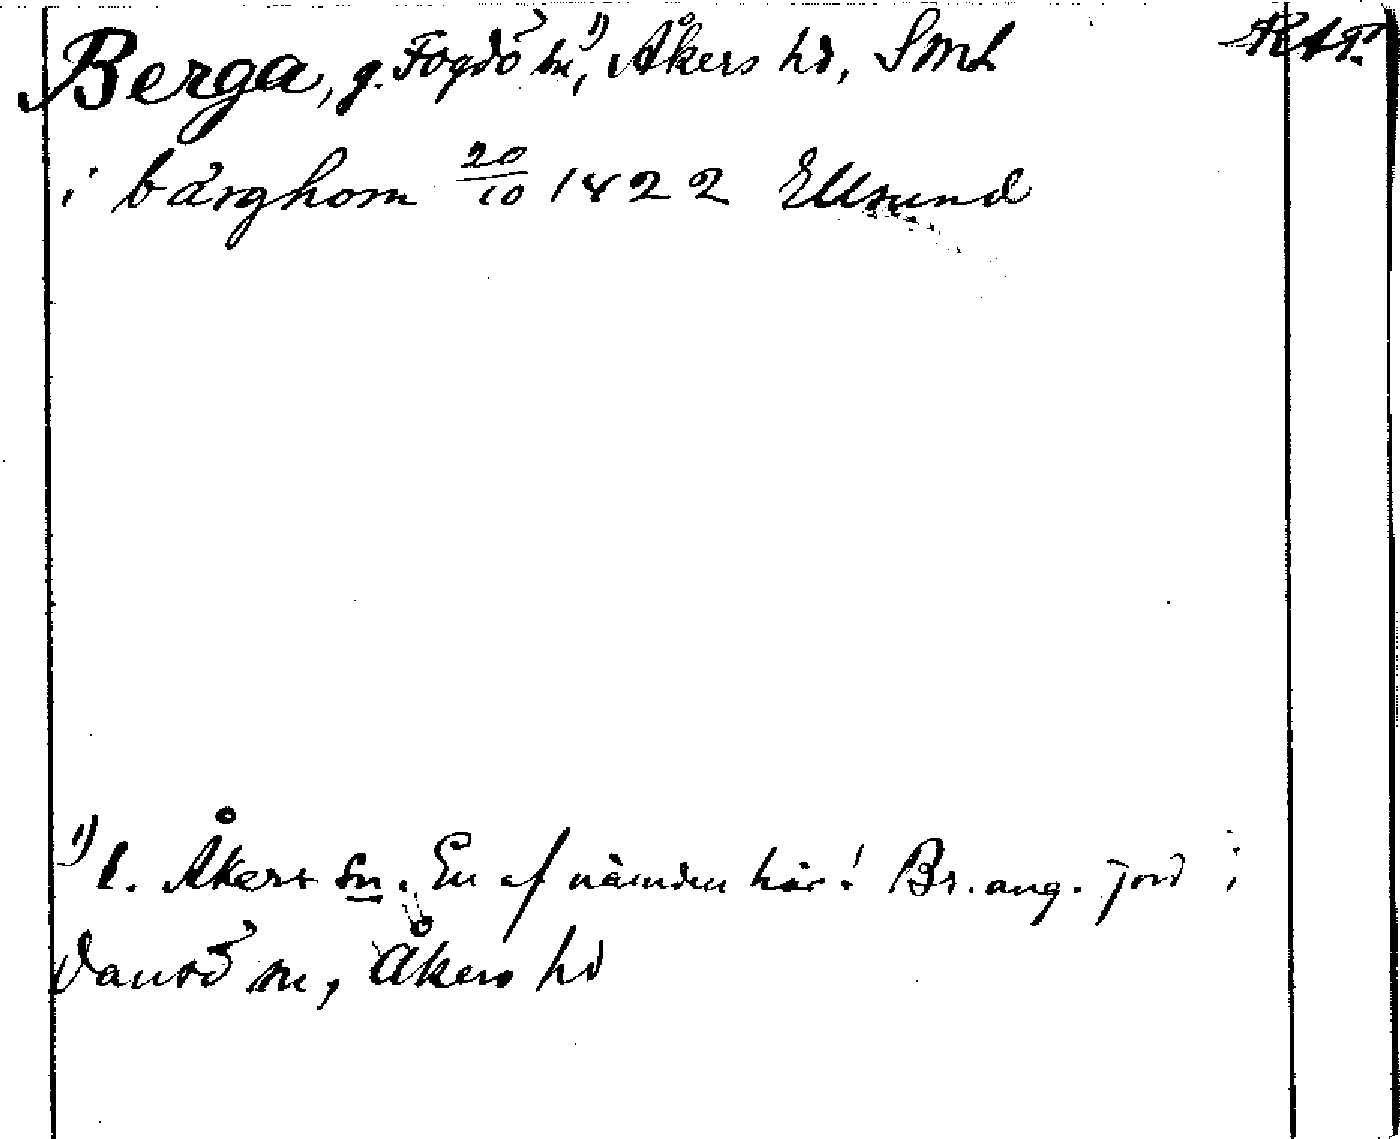 Berga, g. Fogdö sn,¹⁾ Åkers hd, Sml
i bærghom 20/10 1422 Ellsund
¹⁾ l. Åkers sn. En af nämnden här! Br. ang. jord i
Vansö sn, Åkers hd